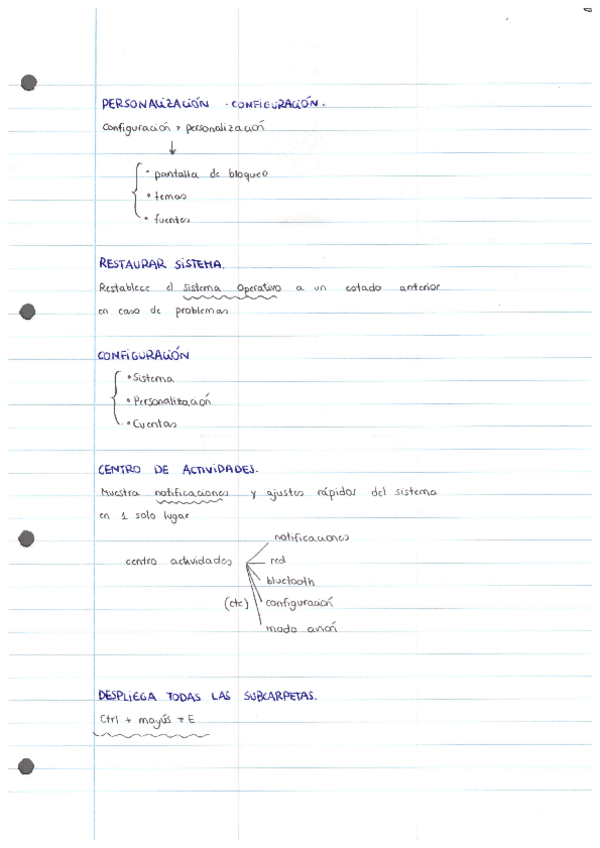 PERSONALIZACIÓN - CONFIGURACIÓN.
Configuración > personalización
↓
• pantalla de bloqueo
• temas
• fuentes
RESTAURAR SISTEMA.
Restablece el sistema operativo a un estado anterior
en caso de problemas
CONFIGURACIÓN
• Sistema
• Personalización
• Cuentas
CENTRO DE ACTIVIDADES.
Muestra notificaciones y ajustes rápidos del sistema
en 1 solo lugar
notificaciones
centro actividades red
bluetooth
(etc) configuración
modo avión
DESPLIEGA TODAS LAS SUBCARPETAS.
Ctrl + mayús + E